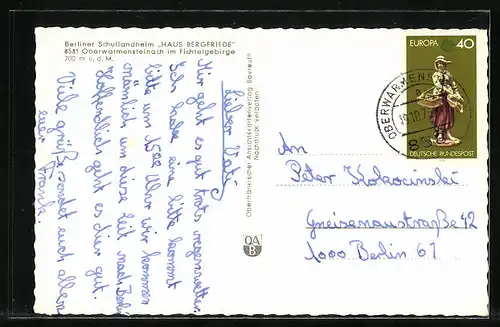 Berliner Schullandheim „HAUS BERGFRIEDE"
8581 Oberwarmensteinach im Fichtelgebirge
700 m ü. d. M.
Lieber Vati,
Mir geht es gut trotz regenwetter.
Ich habe eine bitte kommt
bitte um 1500 Uhr wir kommen
nämlich um diese Zeit nach Berlin
Hoffentlich geht es dier gut.
Viele grüße sendet euch allen
euer Frank.
Oberfränkischer Ansichtskartenverlag Bayreuth
Nachdruck verboten
OA
B
EUROPA 40
DEUTSCHE BUNDESPOST
OBERWARMENS
An
Peter Kokocinski
Gneisenaustraße 42
1000 Berlin 61